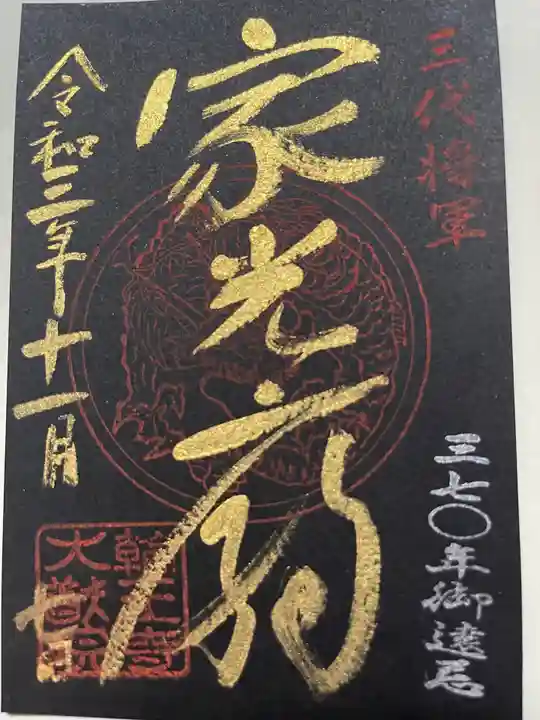 三代将軍
家光廟
三七〇年御遠忌
令和三年十一月
七日
輪王寺
大猷院